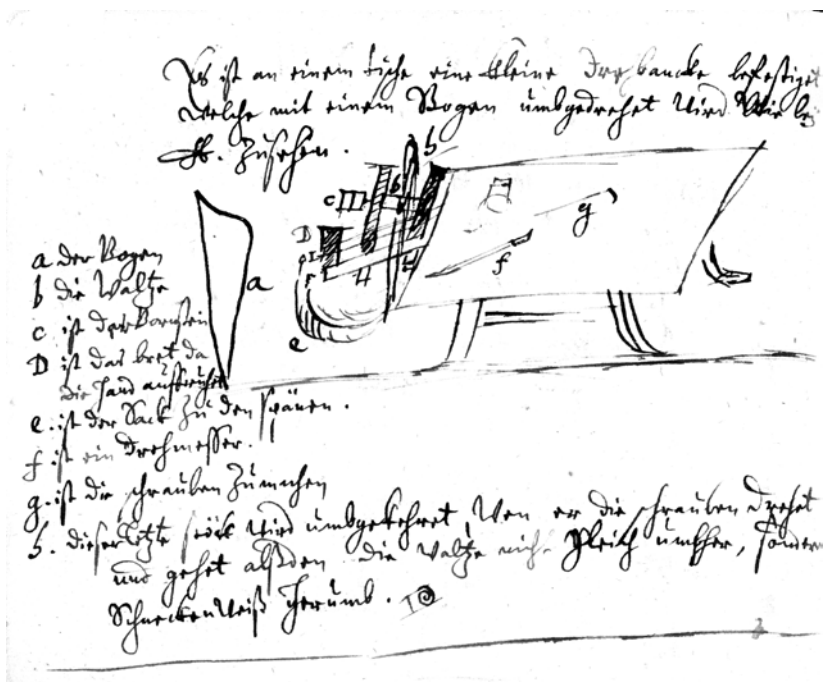 Es ist an einem tische eine kleine Drehbancke befestiget
welche mit einem Bogen umbgedrehet wird Wie bey
zusehen.
b
c
b
D
g
f
H
a
e
a der Bogen
b die Waltze
c ist der Bornstein
D ist das bret da
die Hand auffruhet
e. ist der Sack zu den spänen.
f ist ein Drehmesser.
g. ist die schrauben zumachen
h. dieser letzte stock wird umbgekehret, Wen er die schrauben drehet
und gehet alßden die Waltze nicht gleich umbher, sondern
Schneckenweiß herumb.